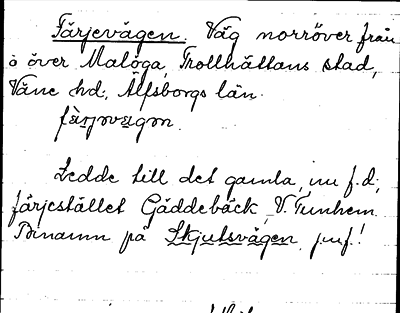 Färjevägen. Väg norröver från
ö över Malöga, Trollhättans stad,
Väne hd, Älfsborgs län.
Ledde till det gamla, nu f.d.,
färjestället Gäddebäck, V. Tunhem.
Binamn på Skjutsvägen, jmf!